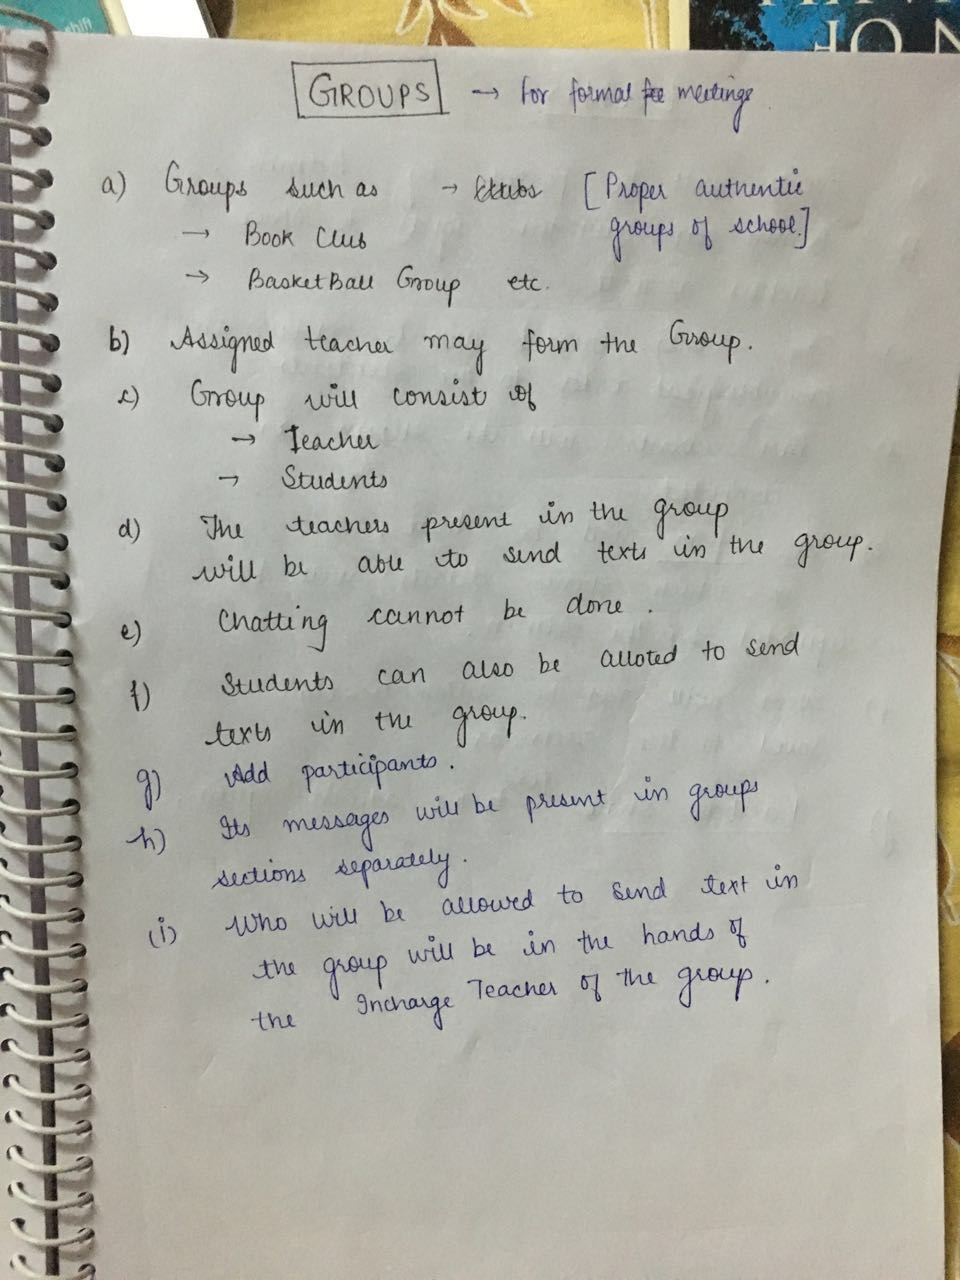 HO N
OF
GROUPS → for formal meetings
a) Groups such as → Clubs [Proper authentic
groups of school.]
→ Book Club
→ BasketBall Group etc.
b) Assigned teacher may form the Group.
c) Group will consist of
→ Teacher
→ Students
d) The teachers present in the group
will be able to send texts in the group.
e) Chatting cannot be done.
f) Students can also be alloted to send
texts in the group.
g) Add participants.
h) Its messages will be present in groups
sections separately.
(i) Who will be allowed to send text in
the group will be in the hands of
the Incharge Teacher of the group.